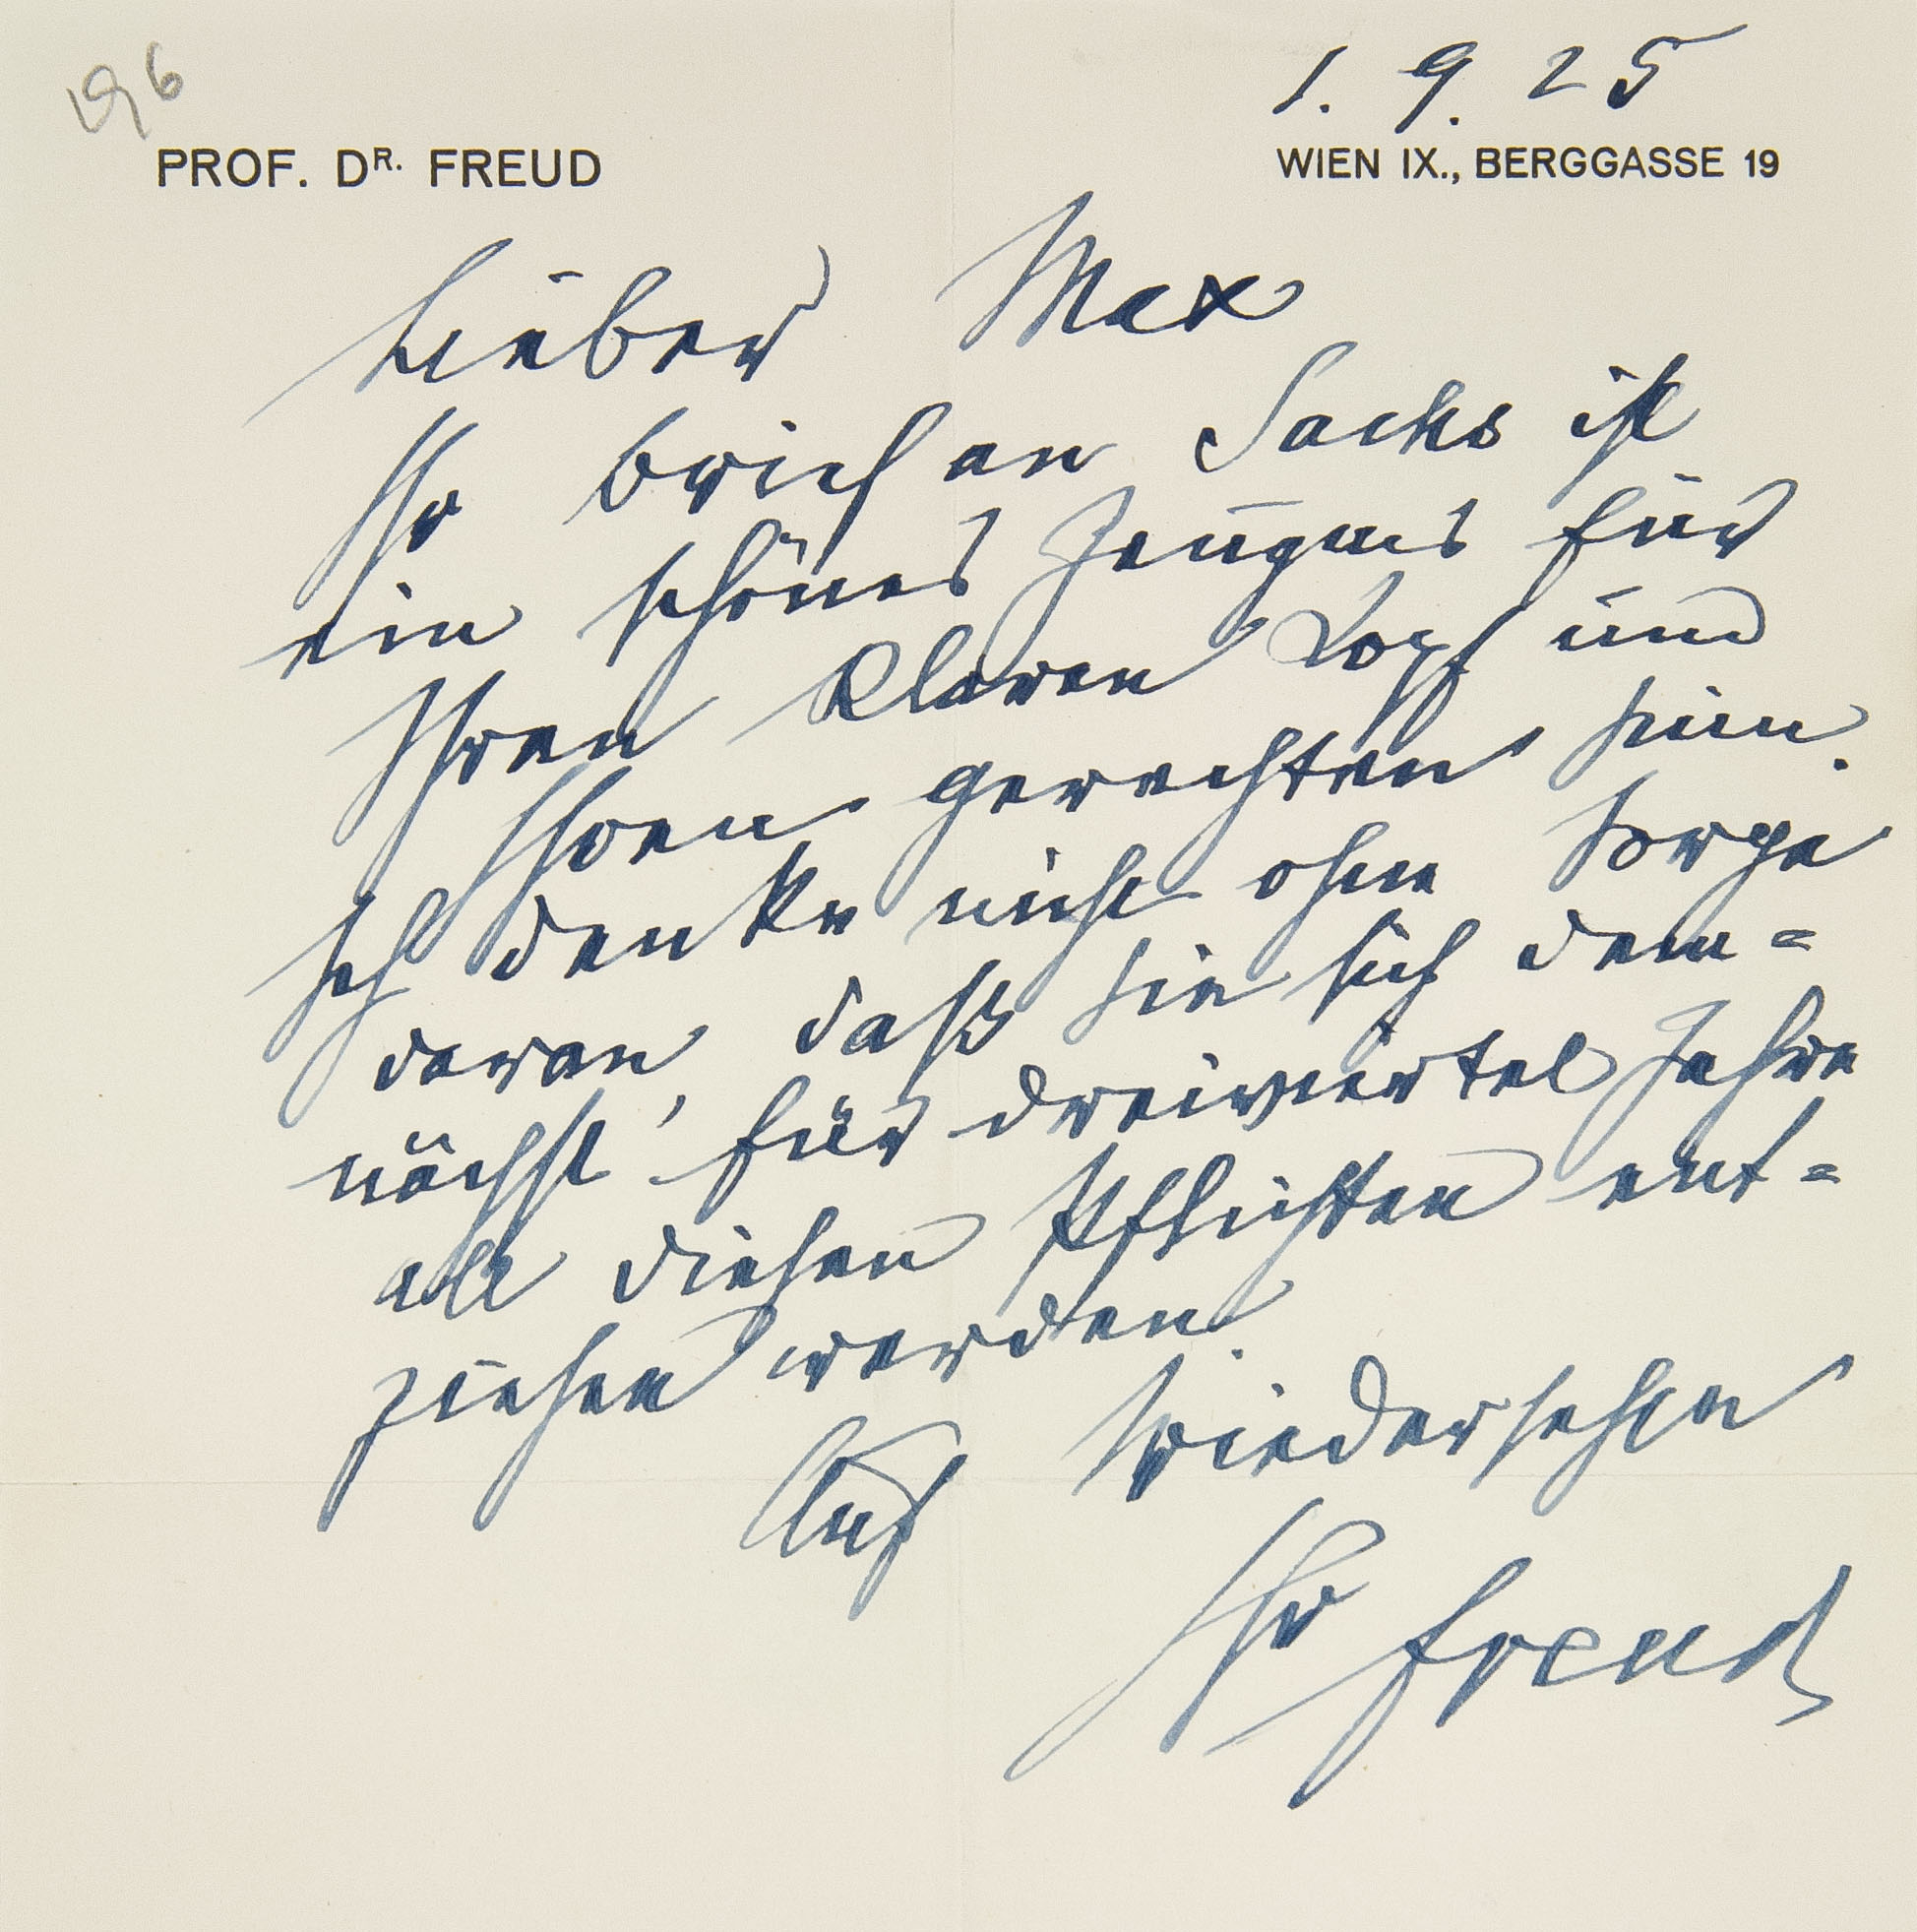 196
1. 9. 25
PROF. DR. FREUD WIEN IX., BERGGASSE 19
Lieber Max
Ihr Brief an Sachs ist
ein schönes Zeugnis für
Ihren klaren Kopf und
Ihren gerechten Sinn.
Ich denke nicht ohne Sorge
daran, daß Sie sich dem=
nächst für dreiviertel Jahre
all diesen Pflichten ent=
ziehen werden.
Auf Wiedersehen
Ihr Freud